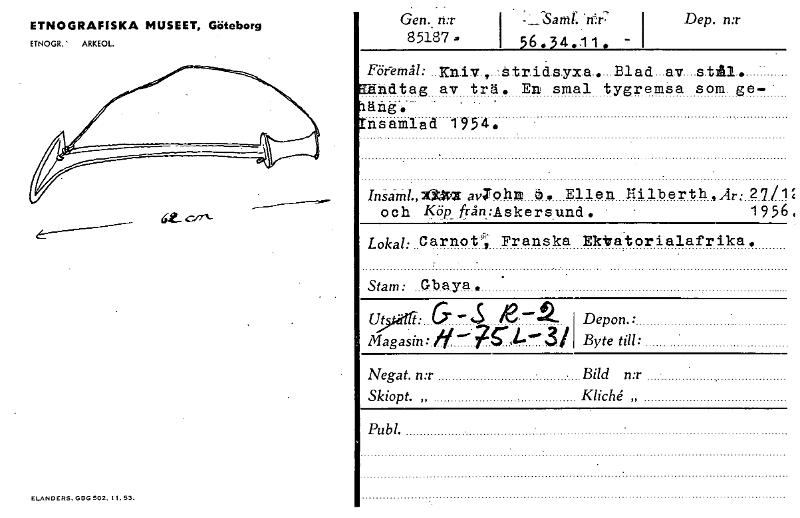 ETNOGRAFISKA MUSEET, Göteborg
ETNOGR. ARKEOL.
62 cm
ELANDERS, GBG 502. 11. 53.
Gen. n:r Saml. n:r Dep. n:r
85187. 56.34.11. -
Föremål: Kniv, stridsyxa. Blad av stål.
Handtag av trä. En smal tygremsa som ge-
häng.
Insamlad 1954.
Insaml., xxxx av John o. Ellen Hilberth. År: 27/12
och Köp från: Askersund. 1956.
Lokal: Carnot, Franska Ekvatorialafrika.
Stam: Gbaya.
Utställt: G-S R-2 Depon.:
Magasin: H-75 L-31 Byte till:
Negat. n:r Bild n:r
Skiopt. „ Kliché „
Publ.